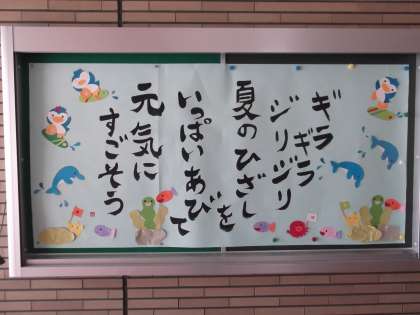 ギラギラ
ジリジリ
夏のひざしを
いっぱいあびて
元気に
すごそう